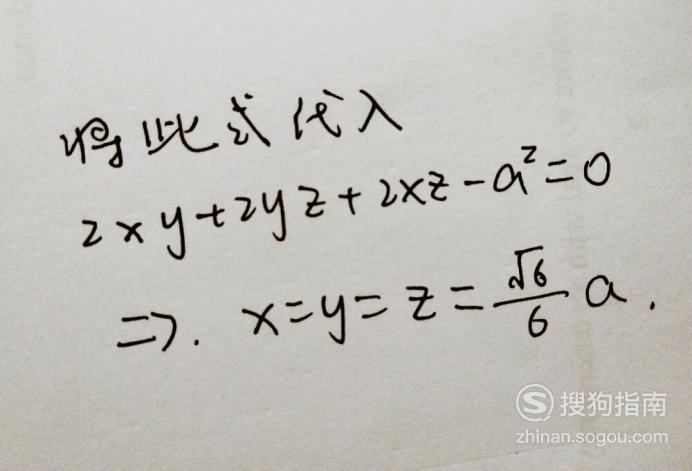 将此式代入
2xy+2yz+2xz-a²=0
=>. x=y=z=√6/6 a.
搜狗指南
zhinan.sogou.com